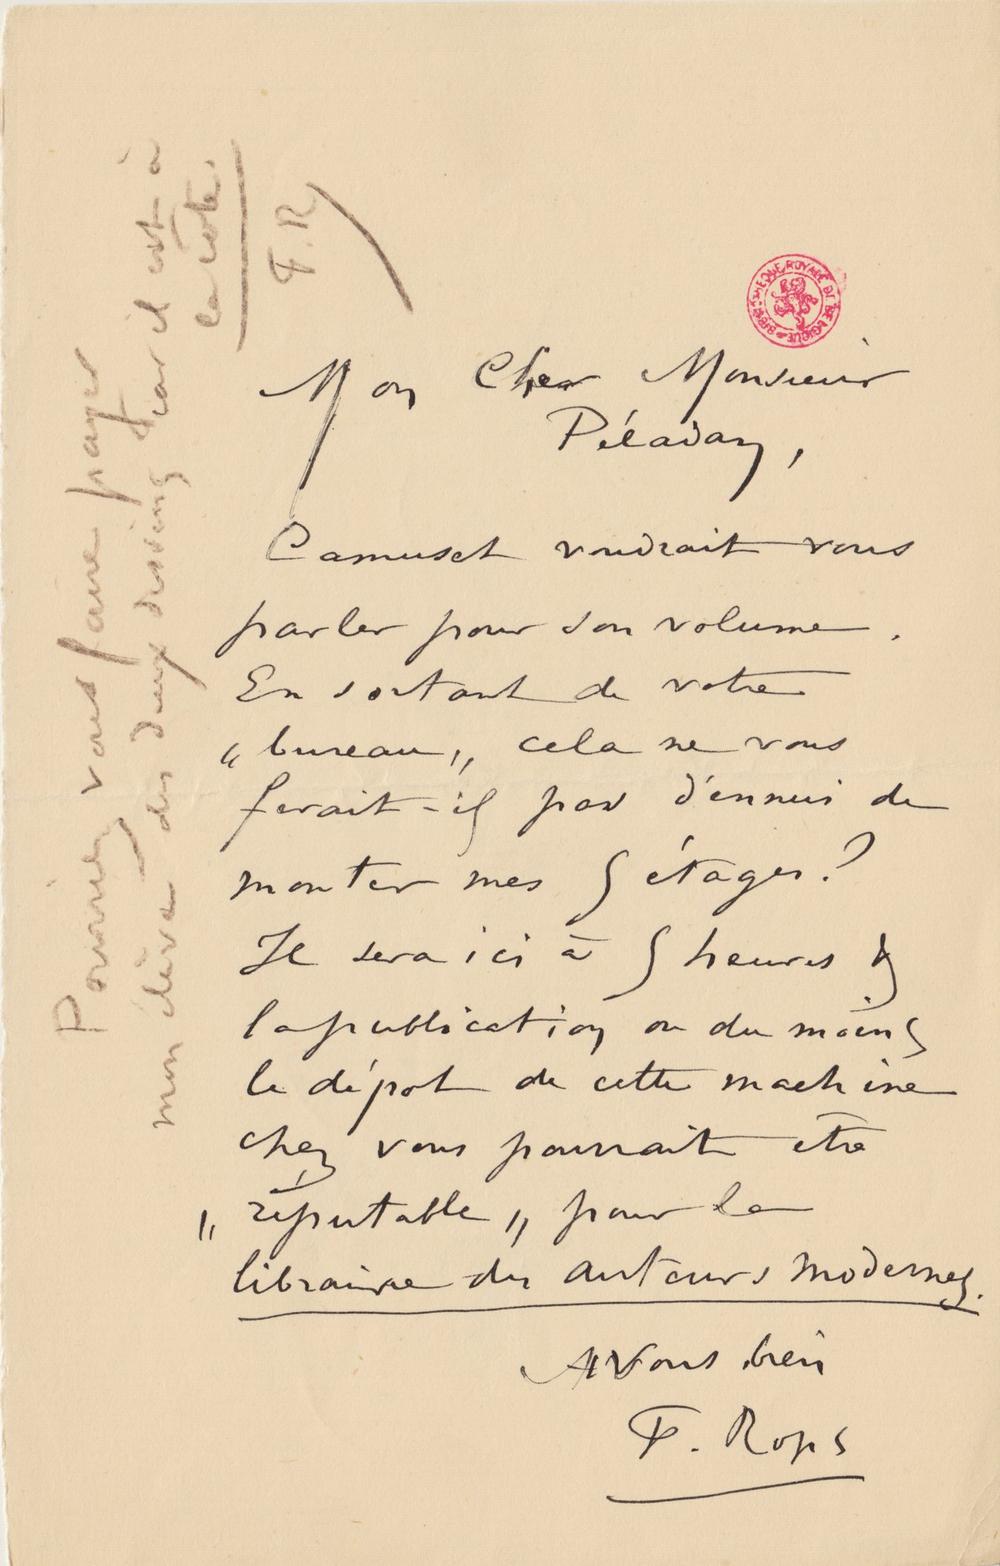 Mon Cher Monsieur
Péladan,
Camuset voudrait vous
parler pour son volume.
En sortant de votre
„bureau„ cela ne vous
ferait-il pas d'ennui de
monter mes 5 étages?
Il sera ici à 5 heures &
la publication ou du moins
le dépot de cette machine
chez vous pourrait être
„réputable„ pour la
librairie des auteurs modernes.
A Vous bien
F. Rops
Pourriez vous faire payer
mon élève des deux dessins car il est à
la côte.
F.R
BIBLIOTHEQUE ROYALE DE BELGIQUE